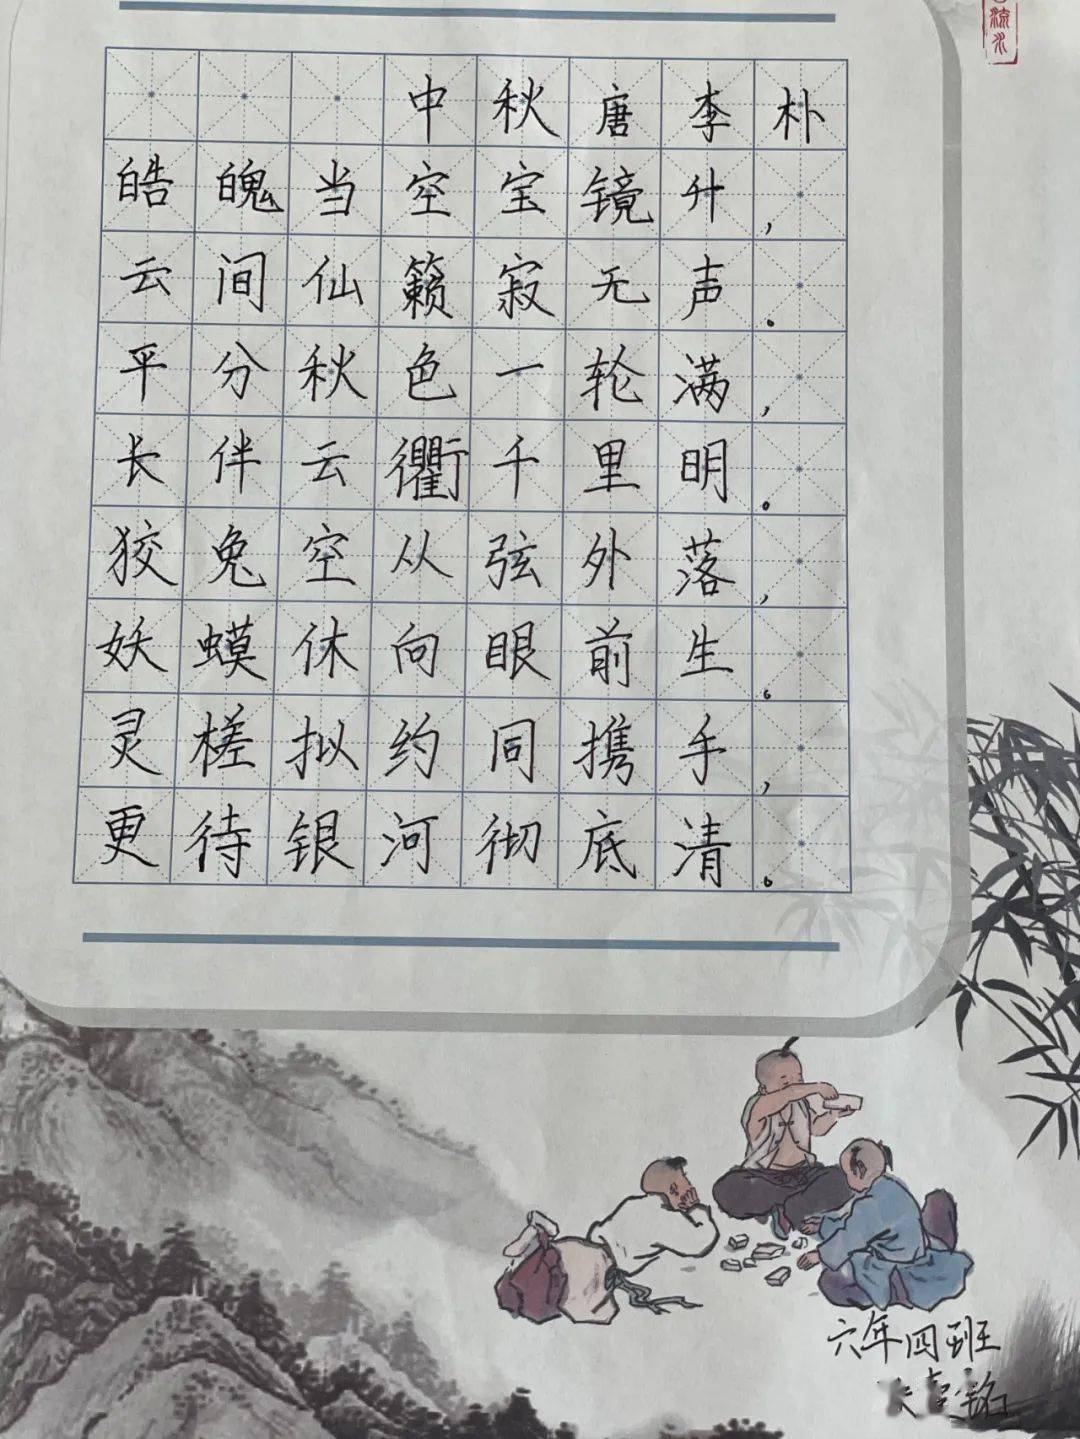 中秋 唐 李朴
皓魄当空宝镜升，
云间仙籁寂无声。
平分秋色一轮满，
长伴云衢千里明。
狡兔空从弦外落，
妖蟆休向眼前生。
灵槎拟约同携手，
更待银河彻底清。
六年四班